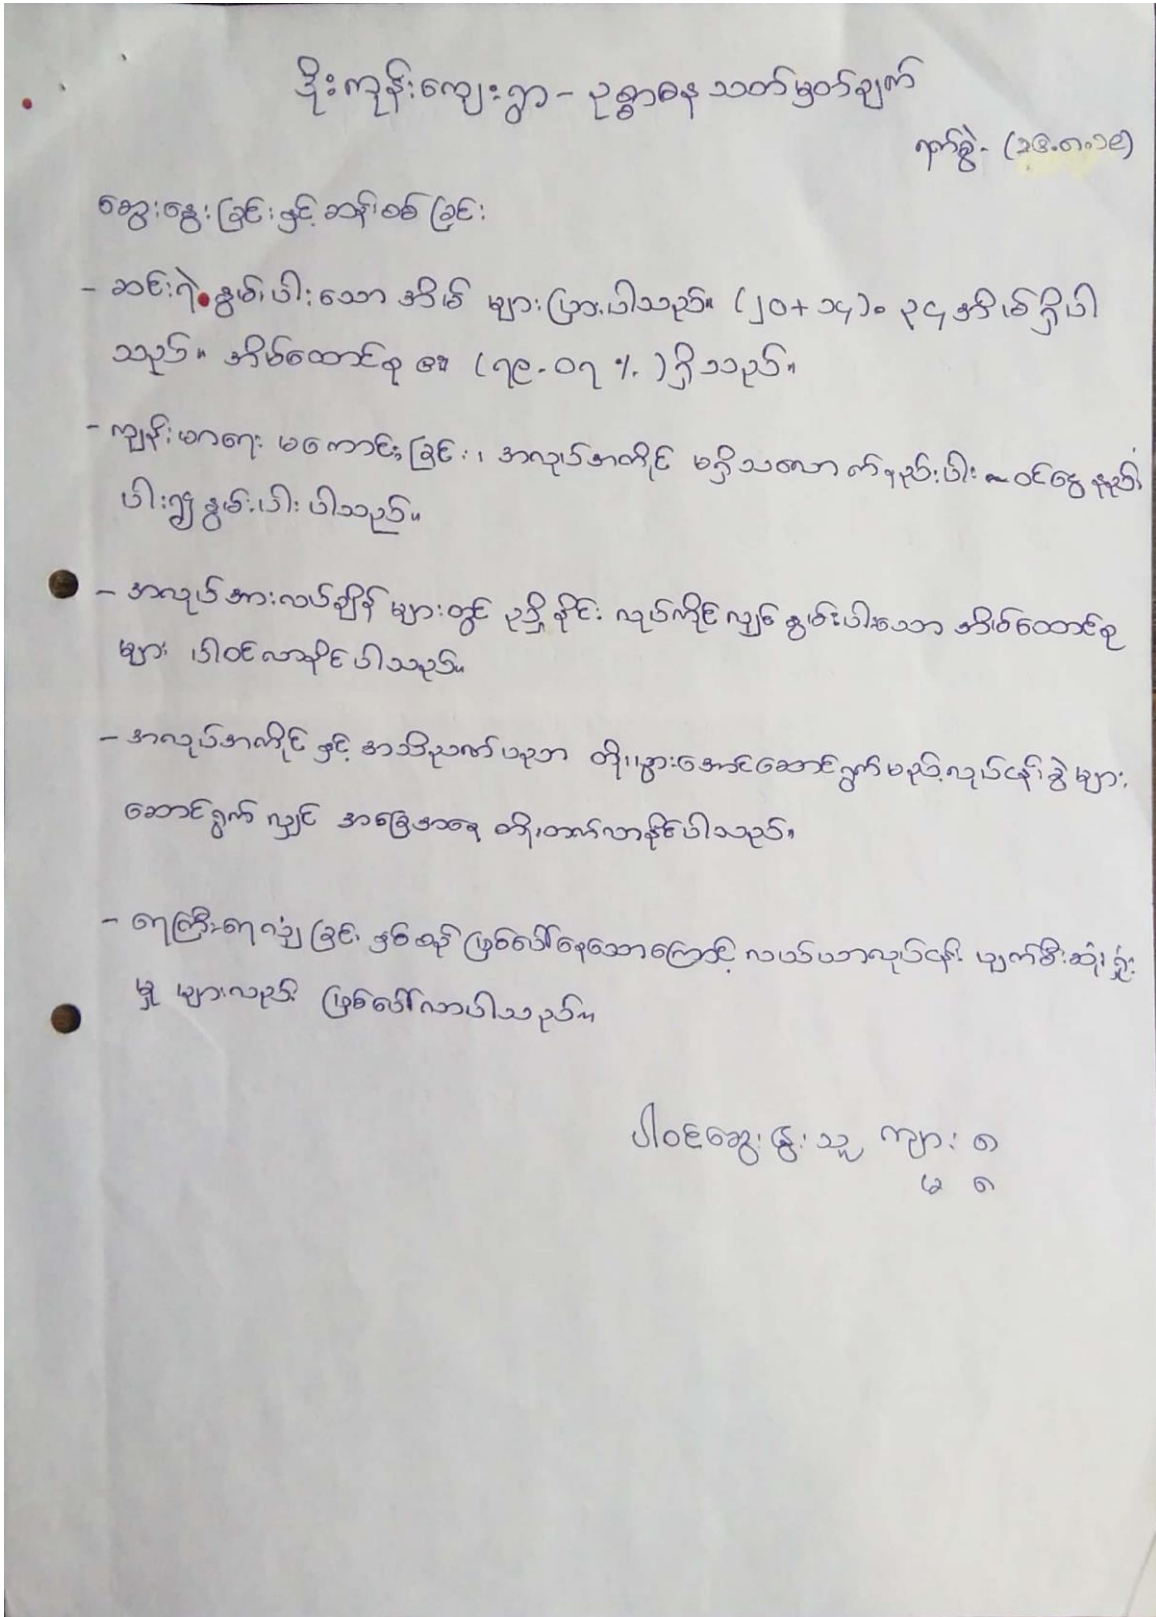 ဒိုးကုန်းကျေးရွာ - ဥစ္စာဓန သတ်မှတ်ချက်
ရက်စွဲ - (၁၆.၈.၁၉)
ဆွေးနွေးခြင်းနှင့် ဆန်းစစ်ခြင်း
- ဆင်းရဲ နွမ်းပါးသော အိမ် များပြားပါသည်။ (၂၀+၁၄)= ၃၄ အိမ်ရှိပါ
သည်။ အိမ်ထောင်စု ၏ (၇၉.၀၇ %) ရှိသည်။
- ကျန်းမာရေး မကောင်းခြင်း ၊ အလုပ်အကိုင် မရှိသလောက်နည်းပါး ဝင်ငွေ နည်း
ပါး၍ နွမ်းပါးပါသည်။
- အလုပ်အားလပ်ချိန် များတွင် ဥသျှိုနှိုင်း လုပ်ကိုင်လျှင် နွမ်းပါးသော အိမ်ထောင်စု
များ ပါဝင်လာနိုင်ပါသည်။
- အလုပ်အကိုင် နှင့် အသိဉာဏ်ပညာ တိုးပွားအောင်ဆောင်ရွက်မည့် လုပ်ငန်းခွဲများ
ဆောင်ရွက် လျှင် အခြေအနေ တိုးတက်လာနိုင်ပါသည်။
- ရေကြီးရေလျှံ ခြင်း နှစ်စဉ် ဖြစ်ပေါ်နေသောကြောင့် လယ်ယာလုပ်ငန်း ပျက်စီးဆုံးရှုံး
မှု များလည်း ဖြစ်ပေါ်လာပါသည်။
ပါဝင်ဆွေးနွေးသူ ကျား ၈
မ ၈